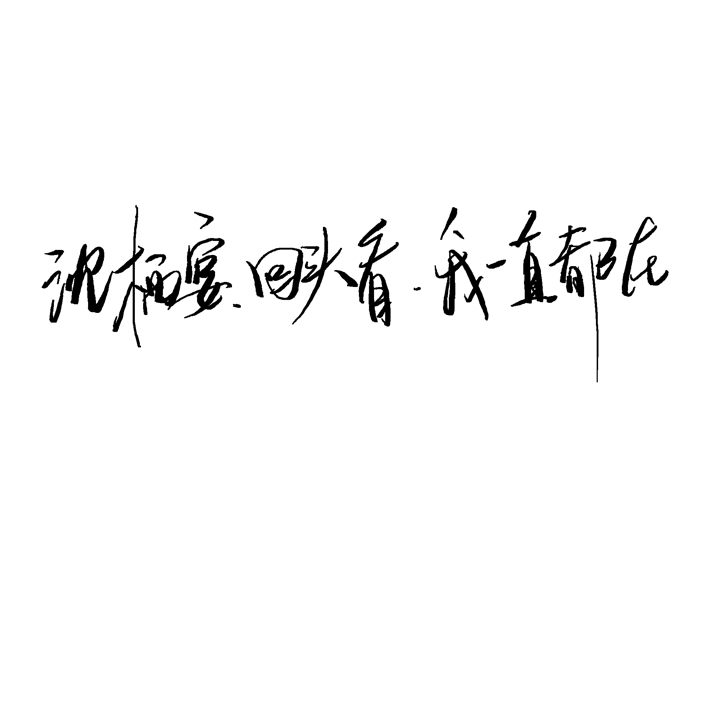 沈栖宴、回头看.我一直都在